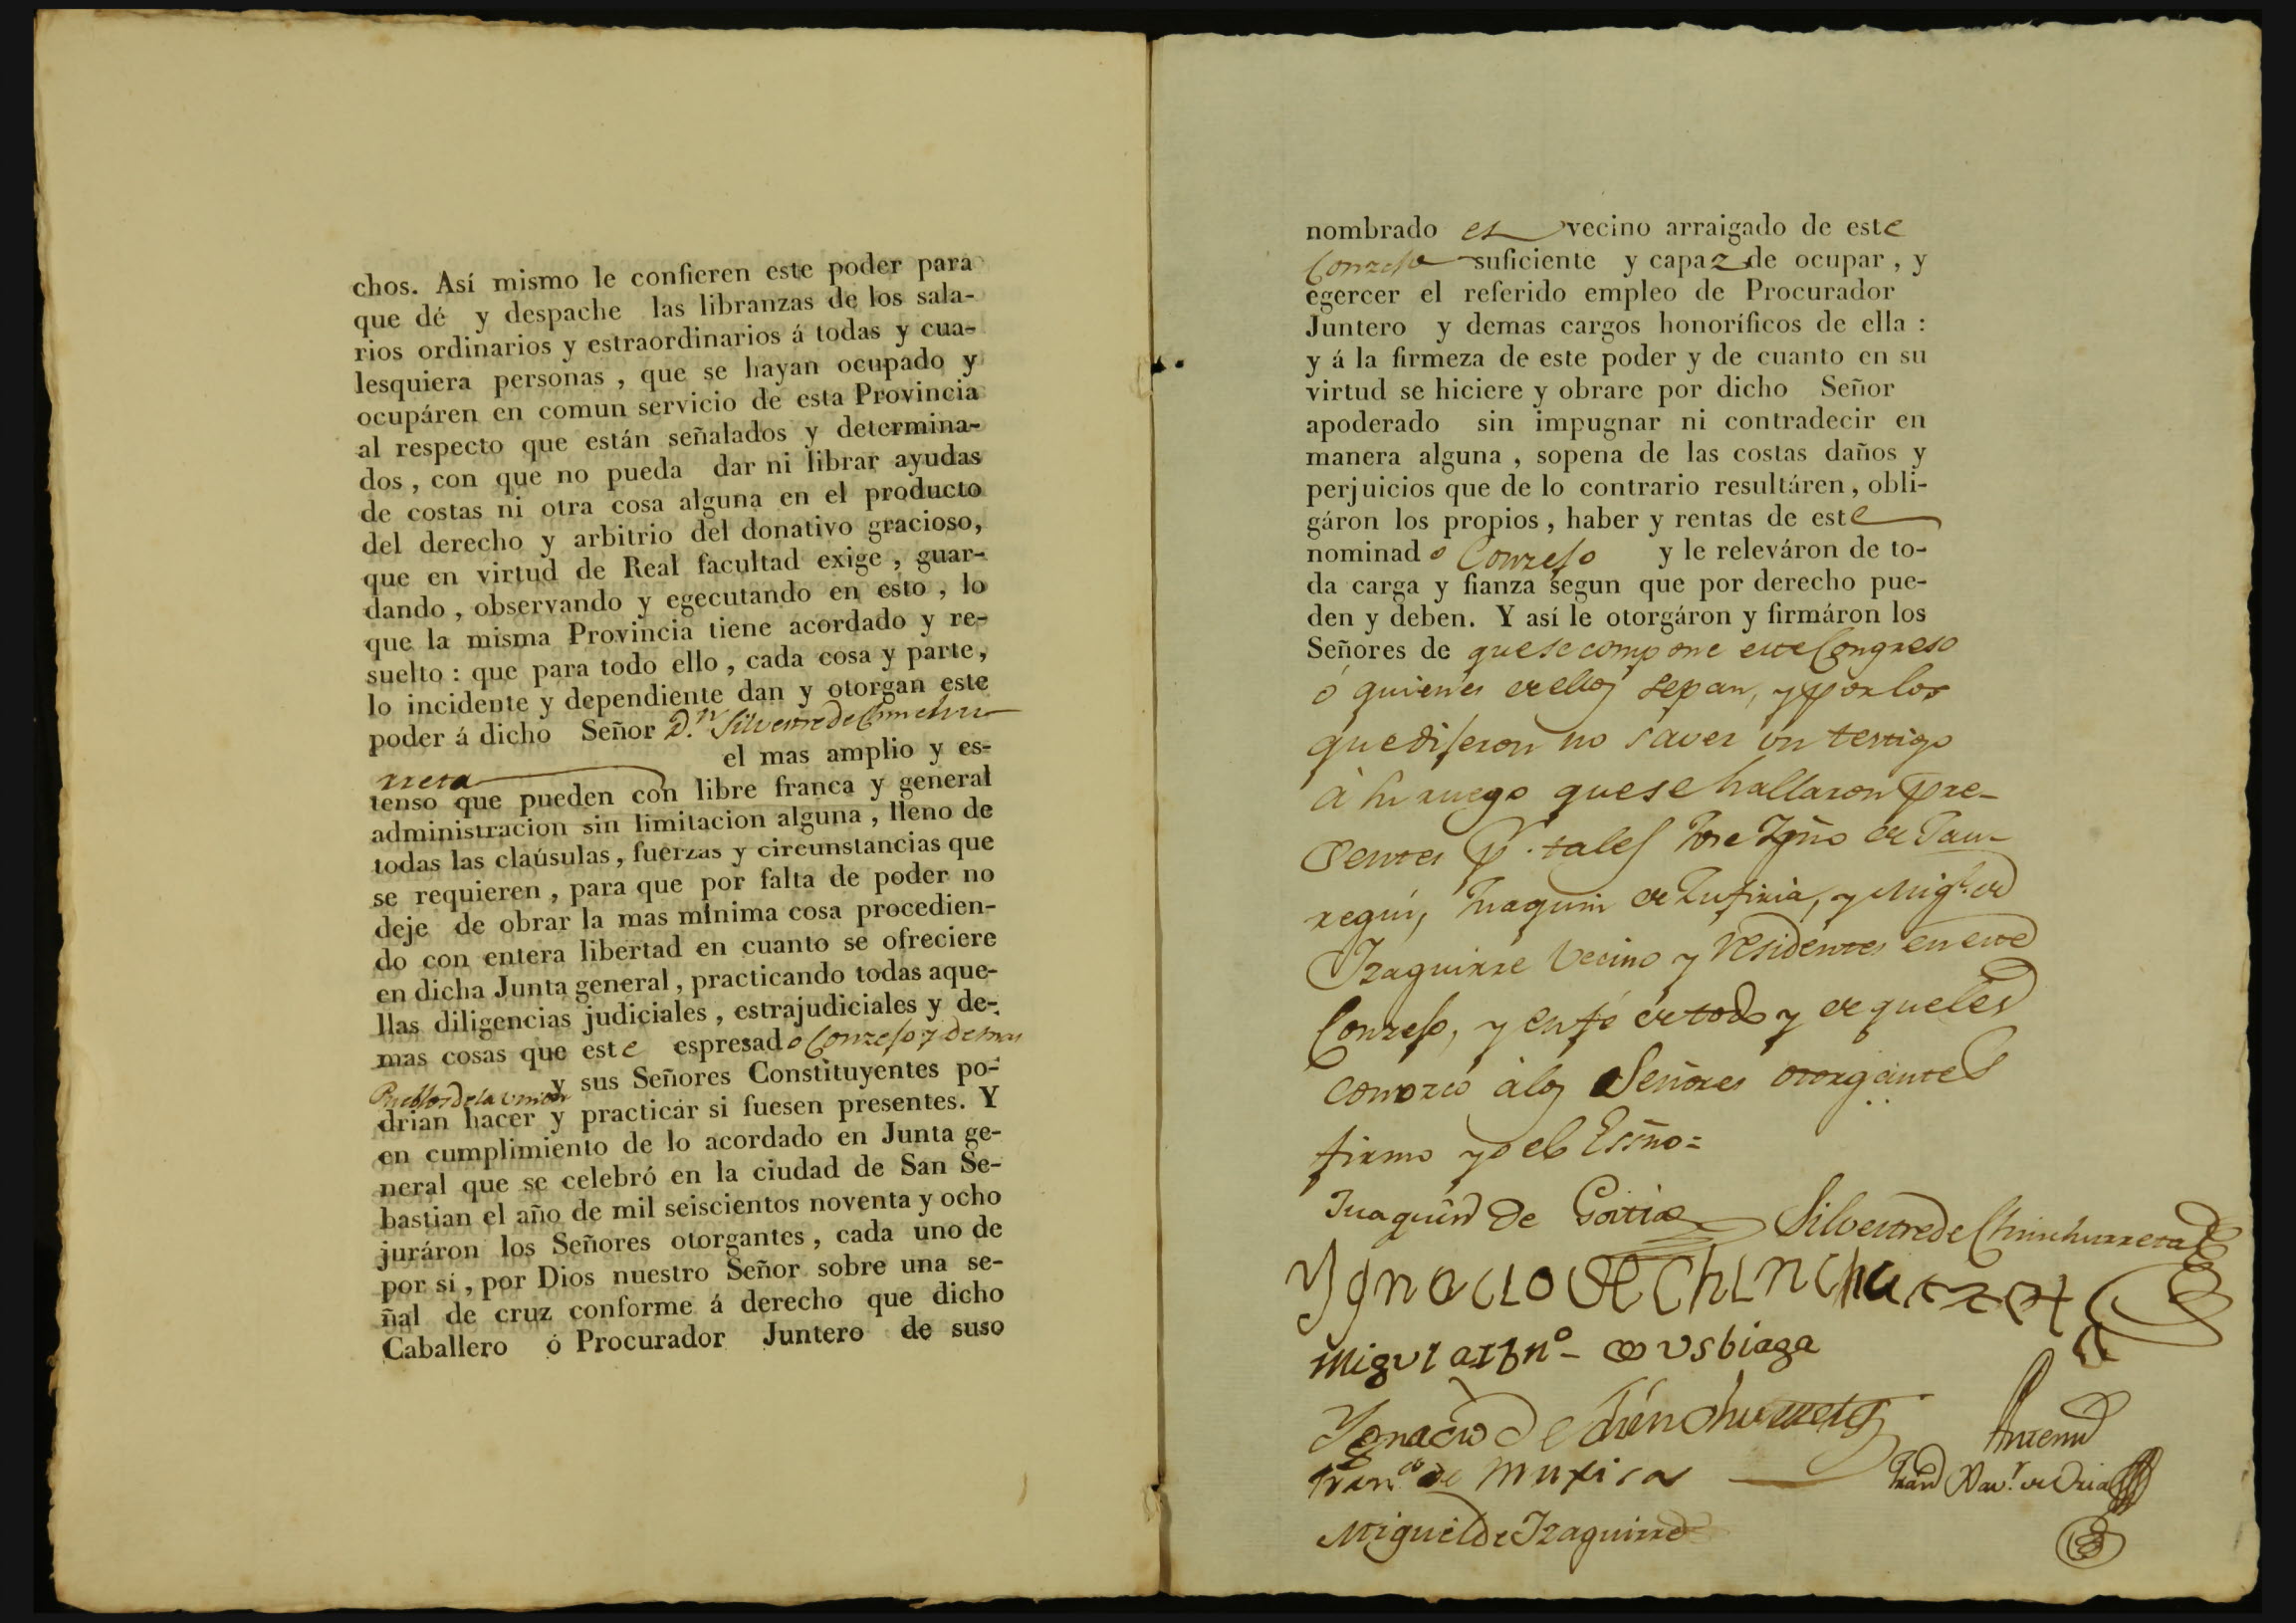 chos. Así mismo le confieren este poder para
que dé y despache las libranzas de los sala-
rios ordinarios y estraordinarios á todas y cua-
lesquiera personas , que se hayan ocupado y
ocupáren en comun servicio de esta Provincia
al respecto que están señalados y determina-
dos , con que no pueda dar ni librar ayudas
de costas ni otra cosa alguna en el producto
del derecho y arbitrio del donativo gracioso,
que en virtud de Real facultad exige , guar-
dando , observando y egecutando en esto , lo
que la misma Provincia tiene acordado y re-
suelto : que para todo ello , cada cosa y parte,
lo incidente y dependiente dan y otorgan este
poder á dicho Señor D.n Silvestre de Chinchu
rreta el mas amplio y es-
tenso que pueden con libre franca y general
administracion sin limitacion alguna , lleno de
todas las claúsulas , fuerzas y circunstancias que
se requieren , para que por falta de poder no
deje de obrar la mas mínima cosa procedien-
do con entera libertad en cuanto se ofreciere
en dicha Junta general , practicando todas aque-
llas diligencias judiciales , estrajudiciales y de-
mas cosas que este espresado Conzejo y demas
Pueblos de la Union y sus Señores Constituyentes po-
drian hacer y practicar si fuesen presentes. Y
en cumplimiento de lo acordado en Junta ge-
neral que se celebró en la ciudad de San Se-
bastian el año de mil seiscientos noventa y ocho
juráron los Señores otorgantes , cada uno de
por sí , por Dios nuestro Señor sobre una se-
ñal de cruz conforme á derecho que dicho
Caballero ó Procurador Juntero de suso
nombrado es vecino arraigado de este
Conzejo suficiente y capaz de ocupar , y
egercer el referido empleo de Procurador
Juntero y demas cargos honoríficos de ella :
y á la firmeza de este poder y de cuanto en su
virtud se hiciere y obrare por dicho Señor
apoderado sin impugnar ni contradecir en
manera alguna , sopena de las costas daños y
perjuicios que de lo contrario resultáren , obli-
gáron los propios , haber y rentas de este
nominado Conzejo y le releváron de to-
da carga y fianza segun que por derecho pue-
den y deben. Y así le otorgáron y firmáron los
Señores de que se compone este Congreso
ó quienes de ellos sepan, y por los
que dijeron no saver un testigo
à su ruego que se hallaron pre-
sentes p.r tales Jose Ygño de Jau-
regui, Juaquin de , y Mig.l de
Yzaguirre Vecino y residentes en este
Conzejo, y en fé de todo y de que les
conozco à los Señores otorgantes
firmo yo el Essño=
Juaquin de Goitia Silvestre de Chinchurreta
Ygnacio de Chinchurreta
Migul de Usbiaga
Ygnacio de Chinchurreta
Fran.co de Muxica
Antemi
Miguel de Yzaguirre